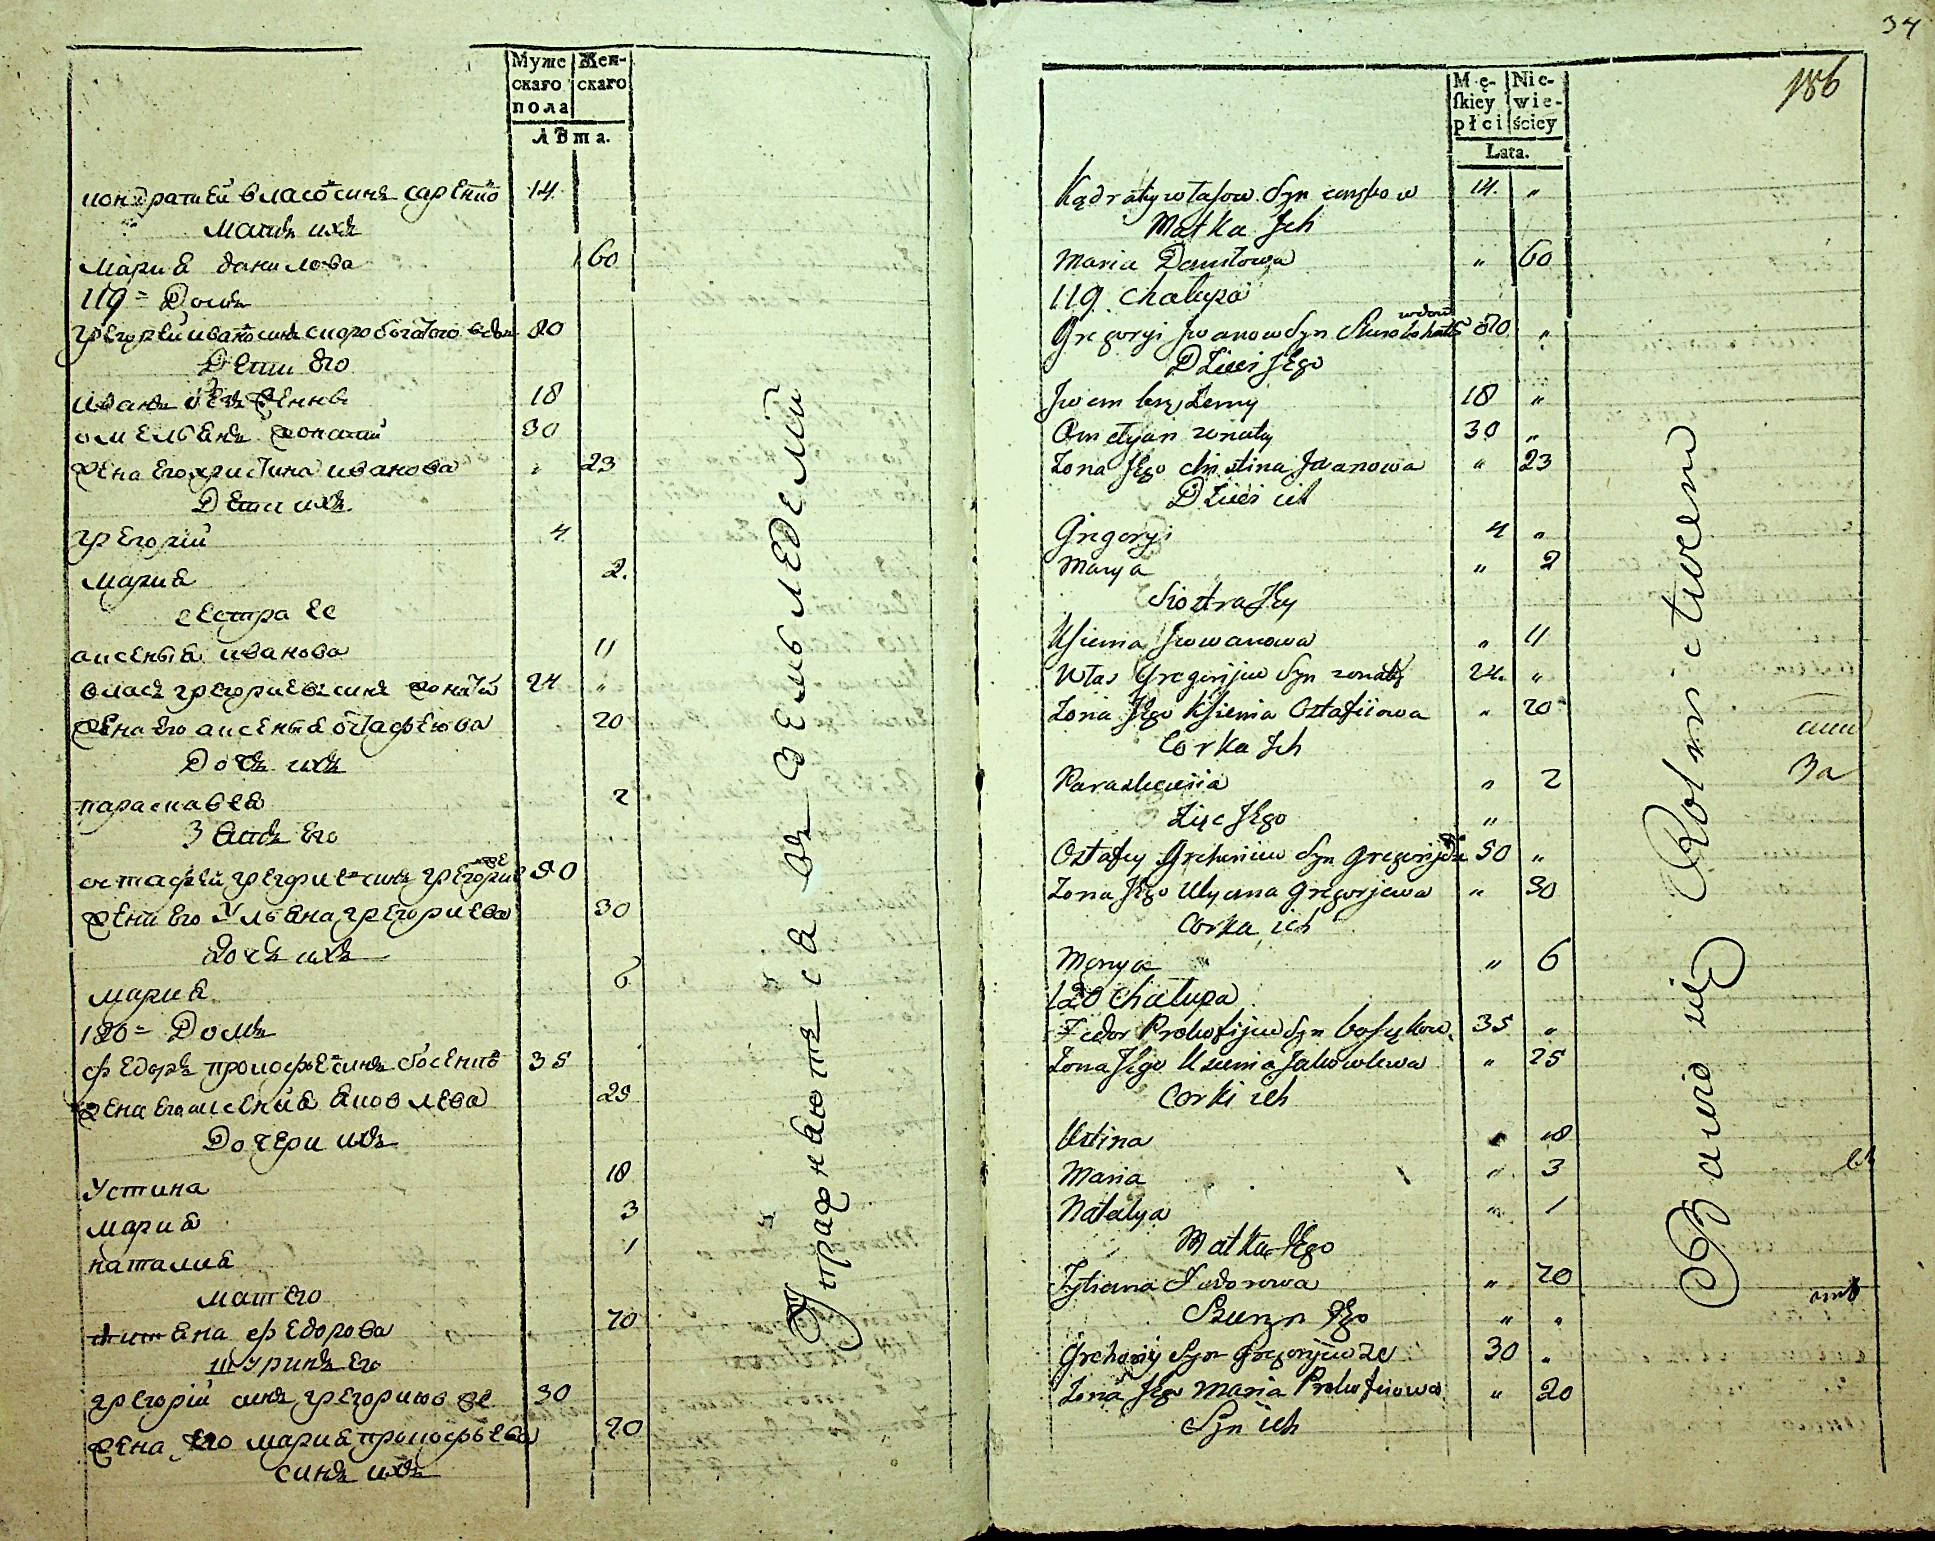 Муже Жен-
скаго скаго
пола
Лѣта.
кондратий власо синъ 14
матъ ихъ
мария данилова 60
119 = Домъ
григорий ивано синъ скоробогатого вдо 80
Дети его
иванъ 18
омельянъ жонатий 30
жена его христина иванова 23
Дети ихъ
григорий 4
мария 2.
сестра ее
аксенья иванова 11
власъ григориевъ синъ жонатий 24 "
жена его аксенья остафиова 20
Дочъ ихъ
параскавея 2
Зять его
остафий синъ григорие 50
жена его Ульяна григориева 30
дочъ ихъ
мария 6
120 = Домъ
федоръ прокофье синъ 35
жена его аксения яковлева 25
Дочери ихъ
Устина 18
мария 3
наталия 1
мат его
федорова 70
шуринъ его
григорий синъ григориюв же 30
жена его мария прокофьева 20
синъ ихъ
Упражняются въ земледелий
34
186
Mę- Nie-
skiey wie-
płci ściey
Lata.
Kądraty własow Syn 14. "
Matka Jch
Maria Daniłowa " 60
119 chałupa
wdow
Gregoryi Jwanow Syn 80 "
Dzieci Jego
Jwan bez Żeny 18 "
Omelyan zonaty 30 "
Żona Jego christina Jwanowa " 23
Dzieci ich
Grigoryi 4 "
Marya " 2
Siostra Jey
Ksienia Jwanowa " 11
Włas Gregorijew Syn zonaty 24. "
Żona Jego Ksienia Ostafiiowa " 20
Corka Jch
Paraskewia " 2
Zięc Jego "
Ostafey Syn Gregorije 50 "
Żona Jego Ulyana Gregorjewa " 30
Corka ich
Marya " 6
120 Chałupa
Fedor Prokofijew Syn 35 "
Żona Jego Ksienia Jakowlewa " 25
Corki ich
Ustina " 18
Maria " 3
Natalya " 1
Matka Jego
Tytiana Fedorowa " 70
Szuryn Jego " "
Grehory Syn Gregorijew ze 30 "
Żona Jego Maria Prokofiiowa " 20
Syn ich
Bawią się Rolnictwem
За